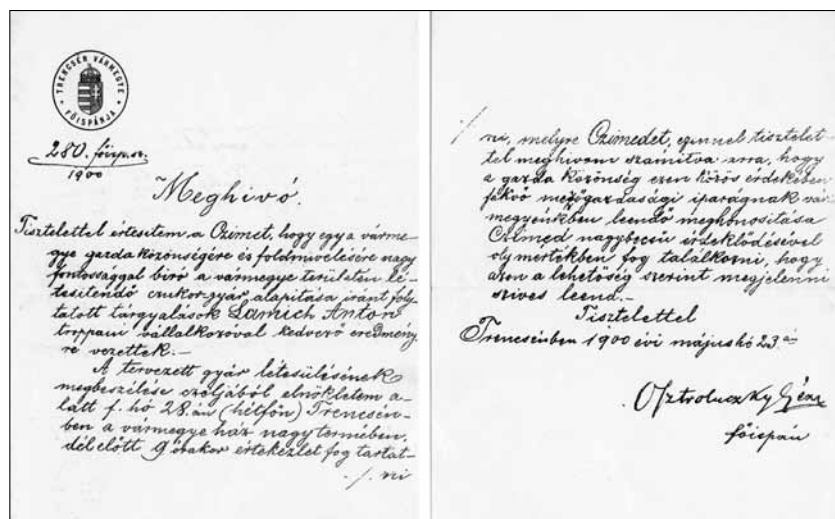 TRENCSÉN VÁRMEGYE
FŐISPÁNJA
280. főisp. sz.
1900
Meghivó.
Tisztelettel értesitem a Czimet, hogy egy a várme-
gye gazdaközönségére és földmivelésére nagy
fontossággal biró a vármegye területén lé-
tesitendő czukor-gyár alapitása iránt foly-
tatott tárgyalások Lamich Anton
troppaui vállalkozóval kedvező eredmény-
re vezettek.—
A tervezett gyár létesülésének
megbeszélése czéljából elnökletem a-
latt f. hó 28.án (hétfőn) Trencsén-
ben a vármegye ház nagytermében,
délelőtt 9 órakor értekezlet fog tartat-
./. ni
./. ni, melyre Czimedet, ezennel tisztelet-
tel meghivom számitva arra, hogy
a gazda közönség ezen közös érdekében
fekvő mezőgazdasági iparágnak vár-
megyénkben leendő meghonositása
Czimed nagybecsü érdeklődésével
oly mértékben fog találkozni, hogy
azon a lehetőség szerint megjelenni
szives leend.—
Tisztelettel
Trencsénben 1900 évi május hó 23.án
Osztroluczky Géza
főispán